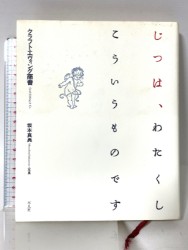 じつは、わたくし
こういうものです
クラフト・エヴィング商會
坂本真典
平凡社